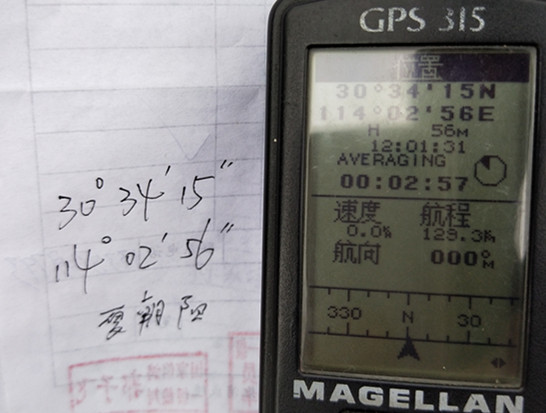 30° 34' 15"
114° 02' 56"
夏朝阳
GPS 315
位置
30°34'15N
114°02'56E
H 56M
12:01:31
AVERAGING
00:02:57
速度 航程
129.3
航向 000°M
330 N 30
MAGELLAN